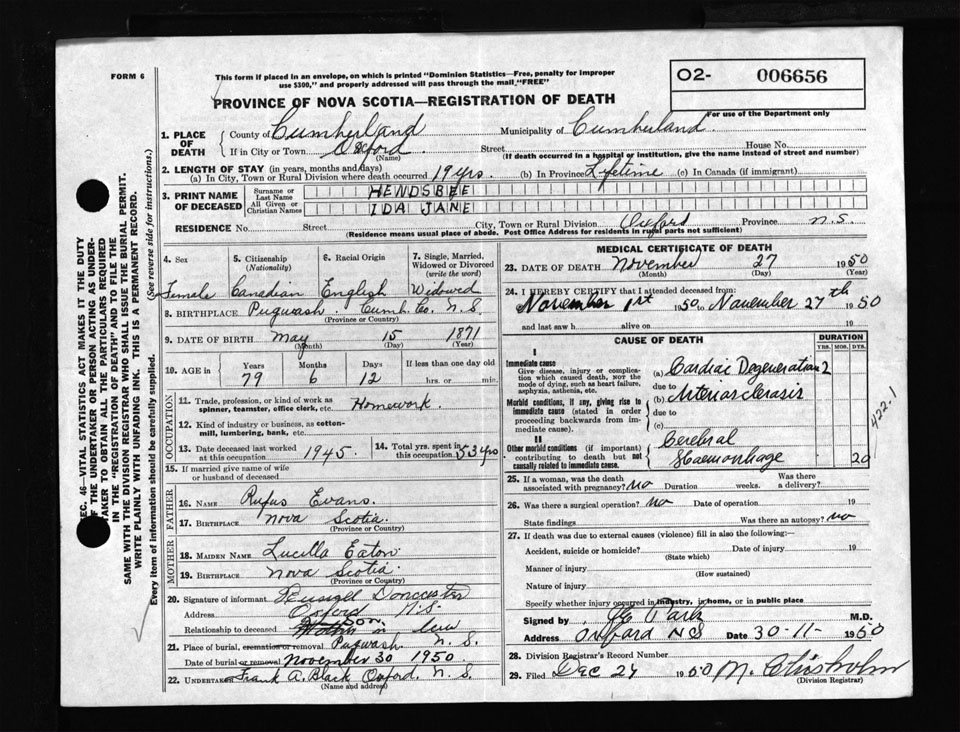 FORM 6
This form if placed in an envelope, on which is printed "Dominion Statistics—Free, penalty for improper use $300," and properly addressed will pass through the mail "FREE"
O2- 006656
For use of the Department only
PROVINCE OF NOVA SCOTIA—REGISTRATION OF DEATH
1. PLACE OF DEATH
County of Cumberland Municipality of Cumberland
If in City or Town Oxford Street House No.
(Name) (If death occurred in a hospital or institution, give the name instead of street and number)
2. LENGTH OF STAY (in years, months and days)
(a) In City, Town or Rural Division where death occurred 19 yrs. (b) In Province Lifetime (c) In Canada (if immigrant)
3. PRINT NAME OF DECEASED
Surname or Last Name HENDSBEE
All Given or Christian Names IDA JANE
RESIDENCE No. Street City, Town or Rural Division Oxford Province N.S.
(Residence means usual place of abode. Post Office Address for residents in rural parts not sufficient)
4. Sex Female
5. Citizenship (Nationality) Canadian
6. Racial Origin English
7. Single, Married, Widowed or Divorced (write the word) Widowed
8. BIRTHPLACE Pugwash. Cumb. Co. N.S.
(Province or Country)
9. DATE OF BIRTH May 15 1871
(Month) (Day) (Year)
10. AGE in Years Months Days If less than one day old
79 6 12 hrs. or min.
OCCUPATION
11. Trade, profession, or kind of work as spinner, teamster, office clerk, etc. Homework.
12. Kind of industry or business, as cotton-mill, lumbering, bank, etc.
13. Date deceased last worked at this occupation 1945.
14. Total yrs. spent in this occupation 53 yrs
15. If married give name of wife or husband of deceased
FATHER
16. NAME Rufus Evans.
17. BIRTHPLACE Nova Scotia.
(Province or Country)
MOTHER
18. MAIDEN NAME Lucilla Eaton
19. BIRTHPLACE Nova Scotia.
(Province or Country)
20. Signature of informant Doncaster
Address Oxford N.S.
Relationship to deceased Son in law
21. Place of burial, cremation or removal Pugwash N.S.
Date of burial or removal November 30 1950
22. Undertaker Frank A. Black Oxford. N.S.
(Name and address)
MEDICAL CERTIFICATE OF DEATH
23. DATE OF DEATH November 27 1950
(Month) (Day) (Year)
24. I HEREBY CERTIFY that I attended deceased from:
November 1st 1950 to November 27th 1950
and last saw h alive on 19
CAUSE OF DEATH
DURATION
YRS. MOS. DYS.
I
Immediate cause
Give disease, injury or complication which caused death, not the mode of dying, such as heart failure, asphyxia, asthenia, etc.
(a) Cardiac Degeneration 2
due to
Morbid conditions, if any, giving rise to immediate cause (stated in order proceeding backwards from immediate cause).
(b) Arteriosclerosis
due to
(c)
II
Other morbid conditions (if important) contributing to death but not causally related to immediate cause.
Cerebral
Haemorrhage 20
422.1
25. If a woman, was the death associated with pregnancy? no Duration weeks. Was there a delivery?
26. Was there a surgical operation? no Date of operation 19
State findings Was there an autopsy? no
27. If death was due to external causes (violence) fill in also the following:—
Accident, suicide or homicide? Date of injury 19
(State which)
Manner of injury
(How sustained)
Nature of injury
Specify whether injury occurred in industry, in home, or in public place
Signed by Park M.D.
Address Oxford NS Date 30-11- 1950
28. Division Registrar's Record Number
29. Filed Dec 27 1950 M. Chisholm
(Division Registrar)
SEC. 46—VITAL STATISTICS ACT MAKES IT THE DUTY
OF THE UNDERTAKER OR PERSON ACTING AS UNDER-
TAKER TO OBTAIN ALL THE PARTICULARS REQUIRED
IN THE "REGISTRATION OF DEATH" AND TO FILE THE
SAME WITH THE DIVISION REGISTRAR WHO SHALL ISSUE THE BURIAL PERMIT.
WRITE PLAINLY WITH UNFADING INK. THIS IS A PERMANENT RECORD.
Every item of information should be carefully supplied. (See reverse side for instructions.)